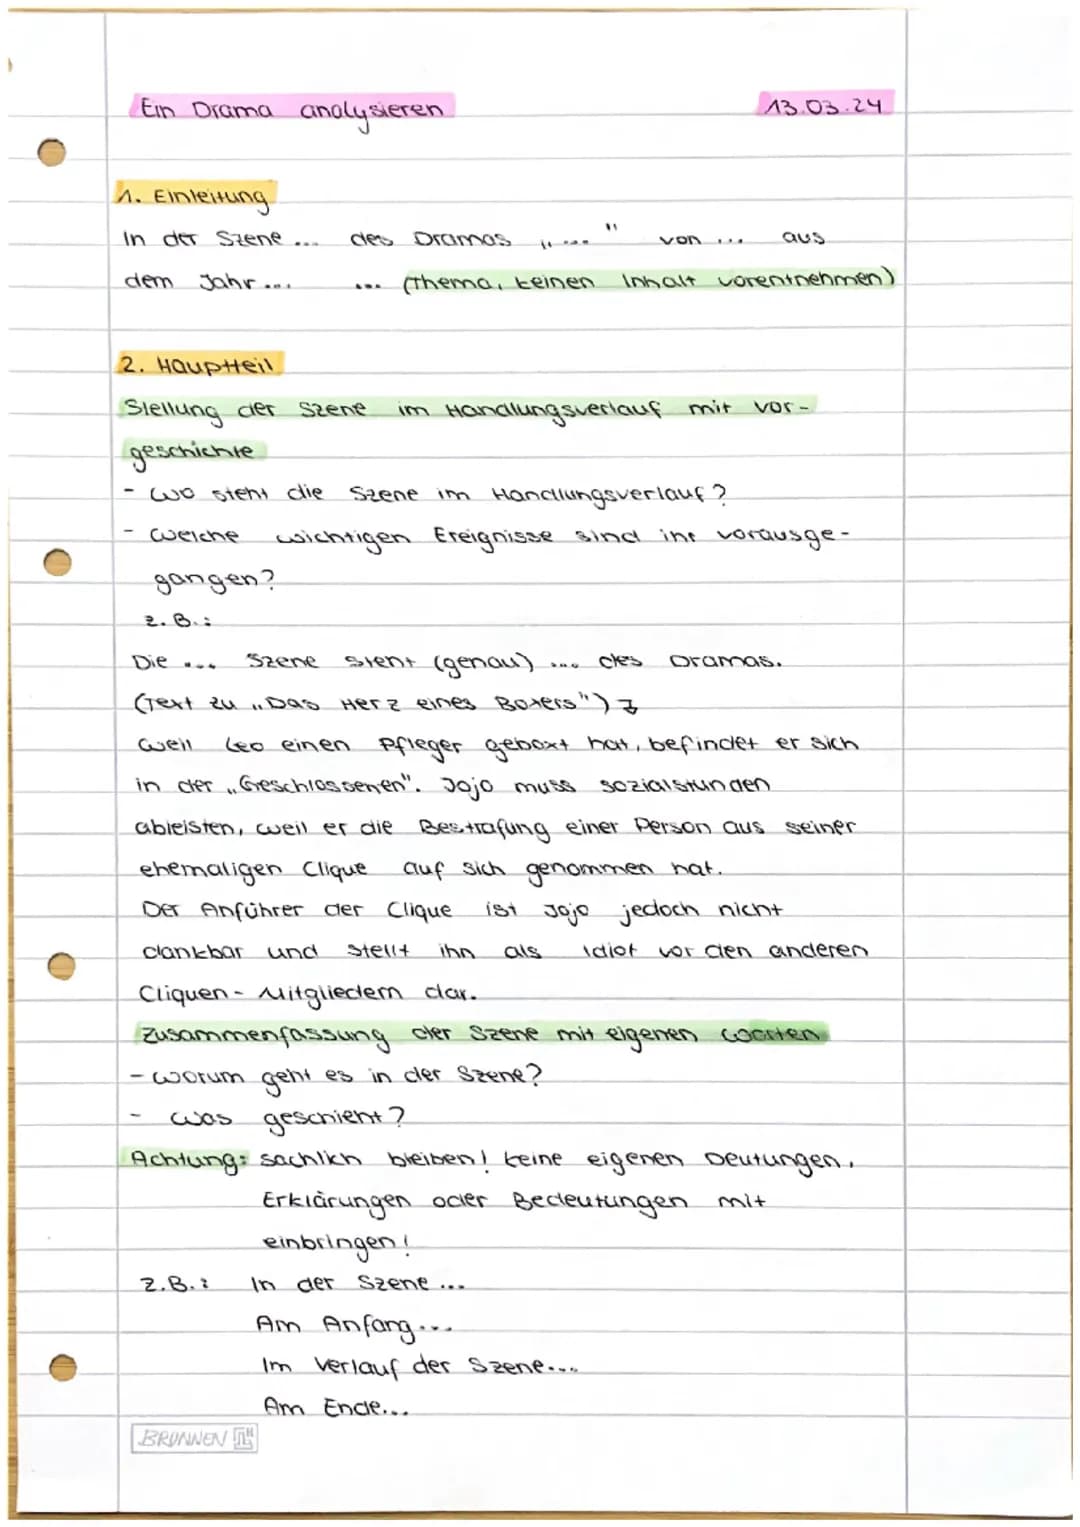 Ein Drama analysieren 13.03.24
1. Einleitung
In der Szene ... des Dramas „..." von ... aus
dem Jahr ... ... (Thema, keinen Inhalt vorentnehmen)
2. Hauptteil
Stellung der Szene im Handlungsverlauf mit Vor-
geschichte
- Wo steht die Szene im Handlungsverlauf?
- Welche wichtigen Ereignisse sind ihr vorausge-
gangen?
z.B.:
Die ... Szene steht (genau) ... des Dramas.
(Text zu „Das Herz eines Boxers") ↴
Weil Leo einen Pfleger geboxt hat, befindet er sich
in der „Geschlossenen". Jojo muss Sozialstunden
ableisten, weil er die Bestrafung einer Person aus seiner
ehemaligen Clique auf sich genommen hat.
Der Anführer der Clique ist Jojo jedoch nicht
dankbar und stellt ihn als Idiot vor den anderen
Cliquen-Mitgliedern dar.
Zusammenfassung der Szene mit eigenen Worten
- Worum geht es in der Szene?
- Was geschieht?
Achtung: sachlich bleiben! Keine eigenen Deutungen,
Erklärungen oder Bedeutungen mit
einbringen!
z.B.: In der Szene ...
Am Anfang...
Im Verlauf der Szene...
Am Ende...
BRUNNEN